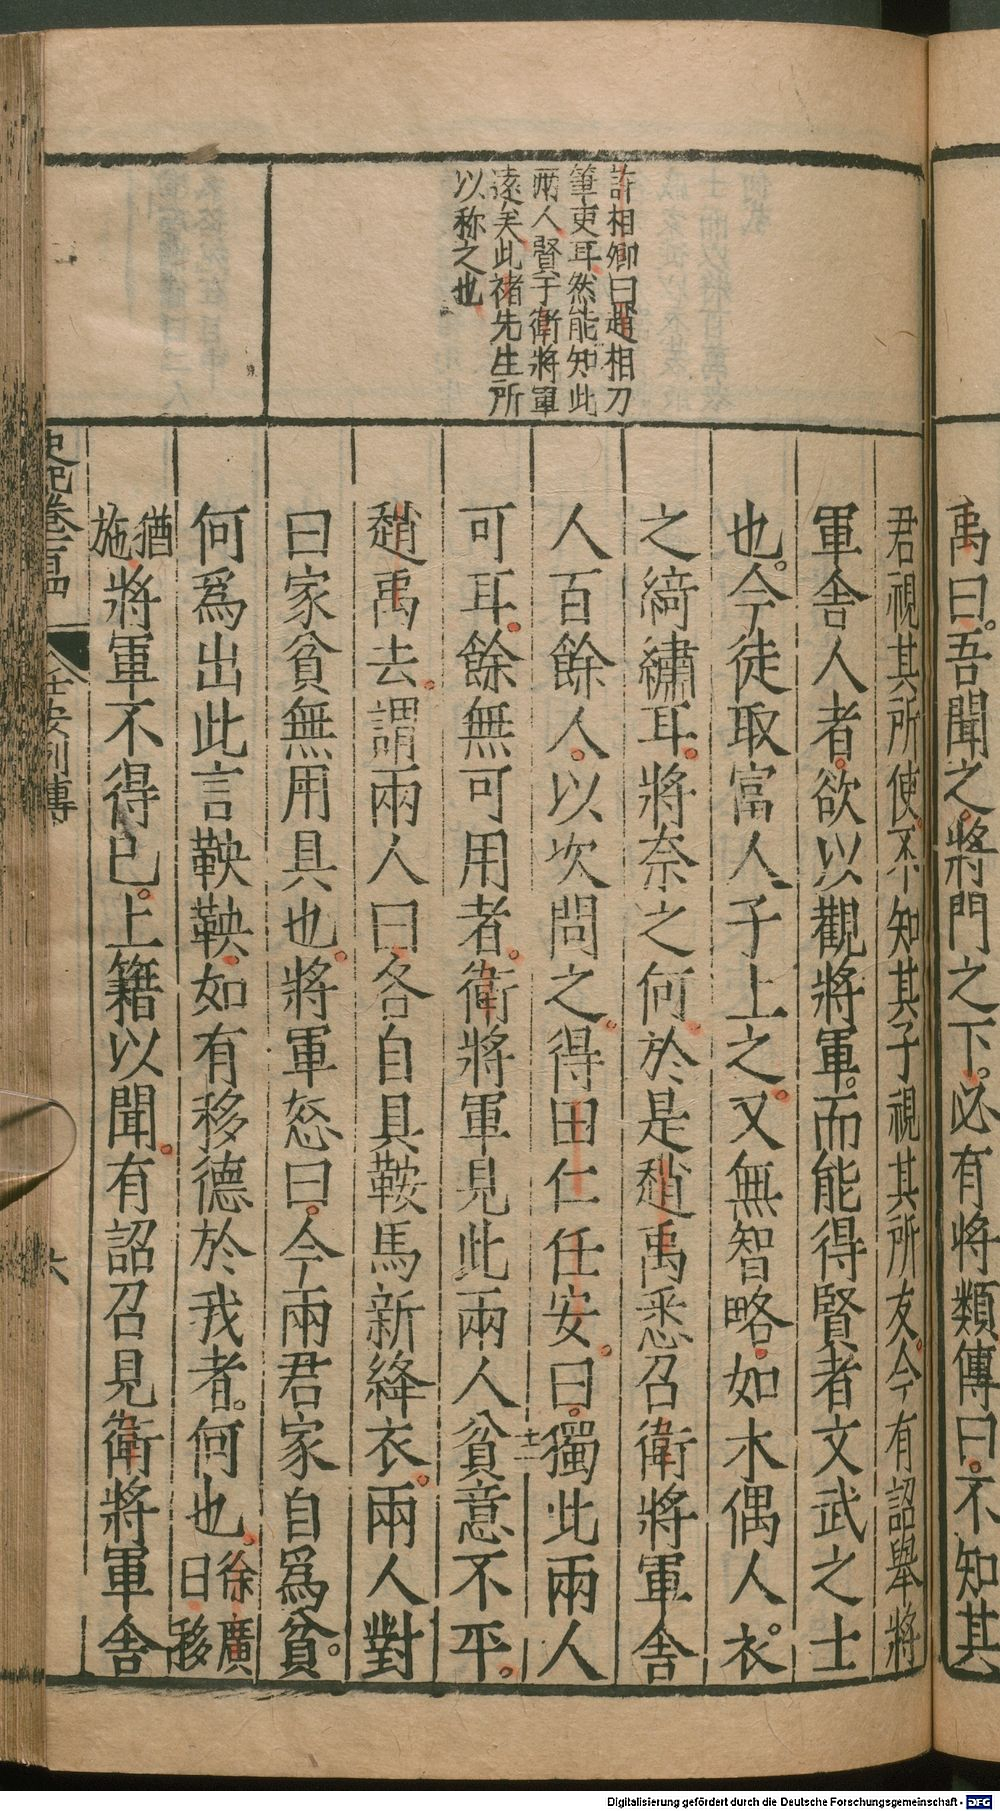 禹曰吾聞之將門之下必有將類傳曰不知其
許相卿曰趙相刀
筆吏耳然能知此
兩人賢于衛將軍
遠矣此褚先生所
以称之也
君視其所使不知其子視其所友今有詔舉將
軍舍人者欲以觀將軍而能得賢者文武之士
也今徒取富人子上之又無智略如木偶人衣
之綺繡耳將奈之何於是趙禹悉召衛將軍舍
人百餘人以次問之得田仁任安曰獨此兩人
可耳餘無可用者衛將軍見此兩人貧意不平
趙禹去謂兩人曰各自具鞍馬新絳衣兩人對
曰家貧無用具也將軍怒曰今兩君家自爲貧
何爲出此言鞅鞅如有移德於我者何也徐廣曰移
猶施將軍不得已上籍以聞有詔召見衛將軍舍
史記卷一百四
任安列傳
六
Digitalisierung gefördert durch die Deutsche Forschungsgemeinschaft - DFG